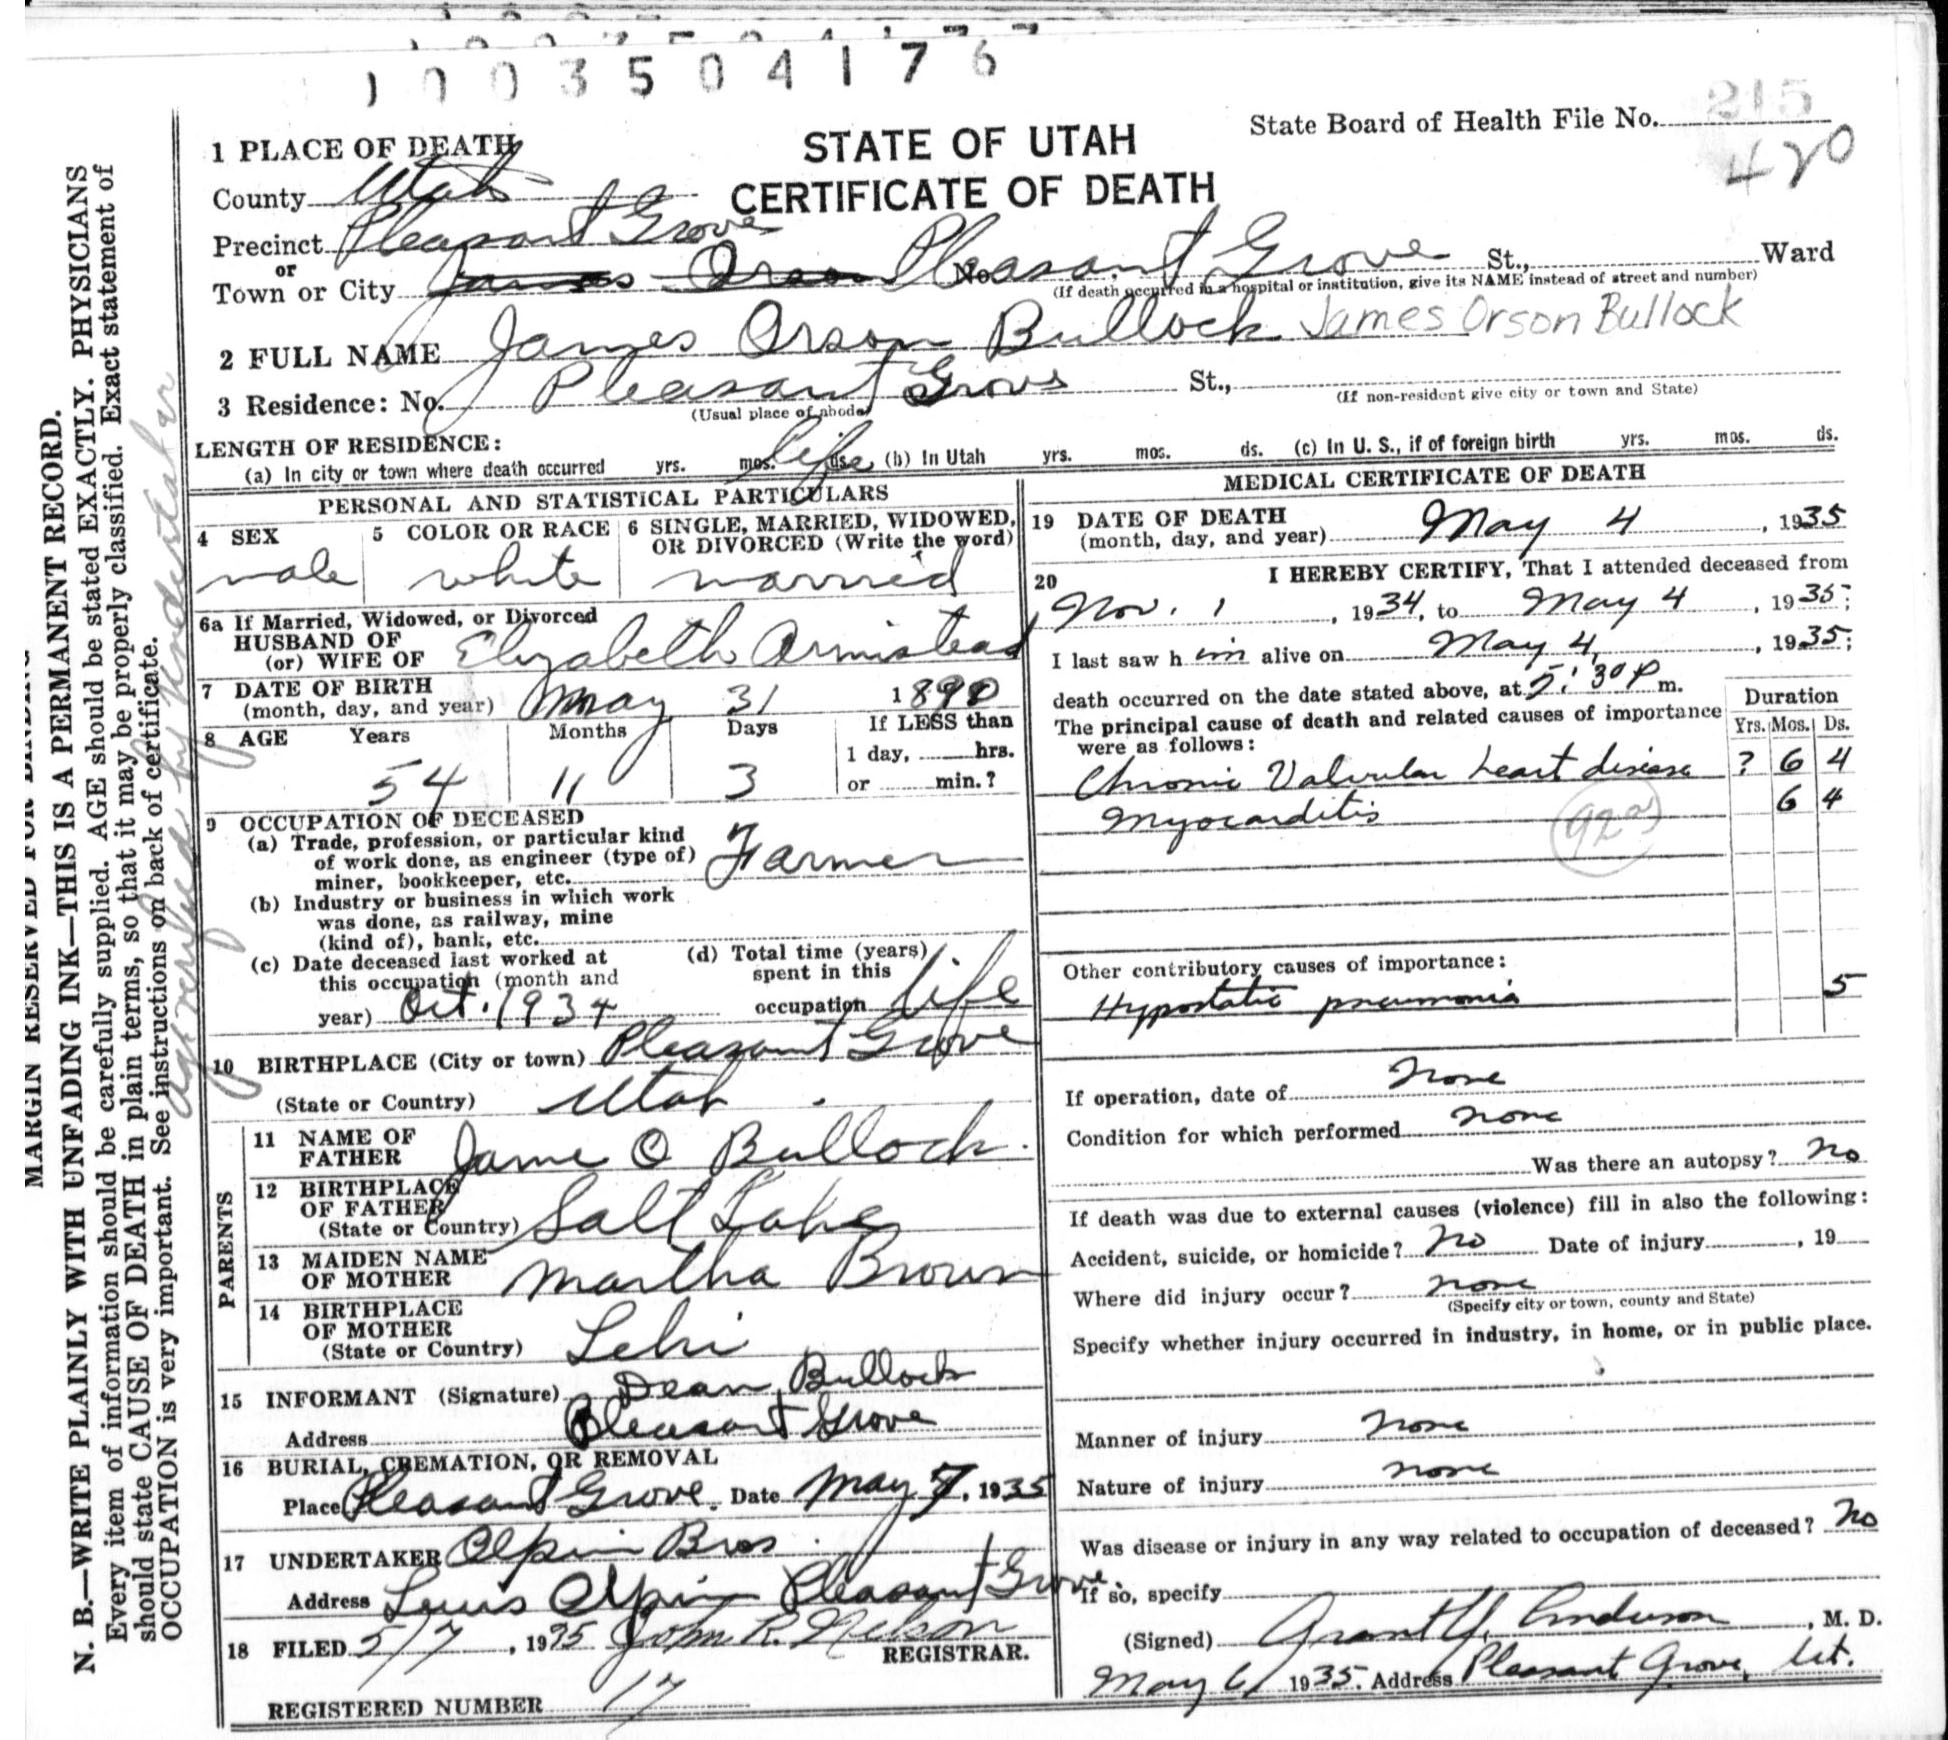 1003504176
State Board of Health File No. 215
420
STATE OF UTAH
CERTIFICATE OF DEATH
1 PLACE OF DEATH
County Utah
Precinct Pleasant Grove
or
Town or City James Orson Pleasant Grove No. St., Ward
(If death occurred in a hospital or institution, give its NAME instead of street and number)
2 FULL NAME James Orson Bullock James Orson Bullock
3 Residence: No. Pleasant Grove St.,
(Usual place of abode) (If non-resident give city or town and State)
LENGTH OF RESIDENCE:
(a) In city or town where death occurred yrs. mos. life ds. (b) In Utah yrs. mos. ds. (c) In U. S., if of foreign birth yrs. mos. ds.
PERSONAL AND STATISTICAL PARTICULARS
4 SEX male
5 COLOR OR RACE white
6 SINGLE, MARRIED, WIDOWED,
OR DIVORCED (Write the word)
married
6a If Married, Widowed, or Divorced
HUSBAND OF
(or) WIFE OF Elizabeth Armistead
7 DATE OF BIRTH
(month, day, and year) May 31 18
8 AGE Years Months Days If LESS than
1 day, hrs.
54 11 3 or min.?
9 OCCUPATION OF DECEASED
(a) Trade, profession, or particular kind
of work done, as engineer (type of)
miner, bookkeeper, etc. Farmer
(b) Industry or business in which work
was done, as railway, mine
(kind of), bank, etc.
(c) Date deceased last worked at
this occupation (month and
year) Oct. 1934
(d) Total time (years)
spent in this
occupation life
10 BIRTHPLACE (City or town) Pleasant Grove
(State or Country) Utah
PARENTS
11 NAME OF
FATHER Jame O Bullock
12 BIRTHPLACE
OF FATHER
(State or Country) Salt Lake
13 MAIDEN NAME
OF MOTHER Martha Brown
14 BIRTHPLACE
OF MOTHER
(State or Country) Lehi
15 INFORMANT (Signature) Dean Bullock
Address Pleasant Grove
16 BURIAL, CREMATION, OR REMOVAL
Place Pleasant Grove. Date May 7, 1935
17 UNDERTAKER Olpin Bros
Address Lewis Olpin Pleasant Grove
18 FILED 5/7, 1935 John R. Nelson
REGISTRAR.
REGISTERED NUMBER 17
MEDICAL CERTIFICATE OF DEATH
19 DATE OF DEATH
(month, day, and year) May 4, 1935
20 I HEREBY CERTIFY, That I attended deceased from
Nov. 1, 1934, to May 4, 1935;
I last saw him alive on May 4, 1935;
death occurred on the date stated above, at 5:30 P m.
The principal cause of death and related causes of importance
were as follows:
Duration
Yrs. Mos. Ds.
Chronic Valvular heart disease ? 6 4
Myocarditis 6 4
Other contributory causes of importance:
Hypostatic pneumonia 5
If operation, date of None
Condition for which performed none
Was there an autopsy? No
If death was due to external causes (violence) fill in also the following:
Accident, suicide, or homicide? No Date of injury, 19
Where did injury occur? none
(Specify city or town, county and State)
Specify whether injury occurred in industry, in home, or in public place.
Manner of injury None
Nature of injury none
Was disease or injury in any way related to occupation of deceased? No
If so, specify
(Signed) Grant Y. Anderson, M. D.
May 6, 1935. Address Pleasant Grove, Ut.
MARGIN RESERVED FOR BINDING
N. B.—WRITE PLAINLY WITH UNFADING INK—THIS IS A PERMANENT RECORD.
Every item of information should be carefully supplied. AGE should be stated EXACTLY. PHYSICIANS
should state CAUSE OF DEATH in plain terms, so that it may be properly classified. Exact statement of
OCCUPATION is very important. See instructions on back of certificate.
age verified by Undertaker